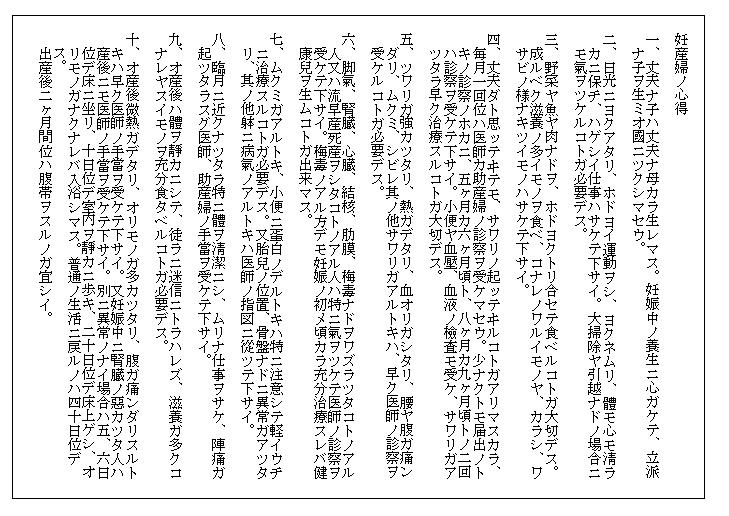 妊産婦ノ心得
一、丈夫ナ子ハ丈夫ナ母カラ生レマス。妊娠中ノ養生ニ心ガケテ、立派
ナ子ヲ生ミオ國ニツクシマセウ。
二、日光ニヨクアタリ、ホドヨイ運動ヲシ、ヨクネムリ、體モ心モ清ラ
カニ保チ、ハゲシイ仕事ハサケテ下サイ。大掃除ヤ引越ナドノ場合ニ
モ氣ヲツケルコトガ必要デス。
三、野菜ヤ魚ヤ肉ナドヲ、ホドヨクトリ合セテ食ベルコトガ大切デス。
成ルベク滋養ノ多イモノヲ食ベ、コナレノワルイモノヤ、カラシ、ワ
サビノ様ナキツイモノハサケテ下サイ。
四、丈夫ダト思ッテヰテモ、サワリノ起ッテヰルコトガアリマスカラ、
毎月一回位ハ医師カ助産婦ノ診察ヲ受ケマセウ。少ナクトモ届出ノト
キノ診察ノホカニ、五ヶ月カ六ヶ月頃ト、八ヶ月カ九ヶ月頃トノ二回
ハ診察ヲ受ケテ下サイ。小便ヤ血壓、血液ノ檢査モ受ケ、サワリガア
ツタラ早ク治療スルコトガ大切デス。
五、ツワリガ強カッタリ、熱ガデタリ、血オリガシタリ、腰ヤ腹ガ痛ン
ダリ、ムクミ、シビレ其ノ他サワリガアルトキハ、早ク医師ノ診察ヲ
受ケルコトガ必要デス。
六、脚氣、腎臓、心臓、結核、肋膜、梅毒ナドヲワズラツタコトノアル
人又ハ流早産死産ヲシタコトノアル人ハ特ニ氣ヲツケテ医師ノ診察ヲ
受ケテ下サイ。梅毒ノアル方デモ妊娠ノ初メ頃カラ充分治療スレバ健
康兒ヲ生ムコトガ出来マス。
七、ムクミガアルトキ、小便ニ蛋白ノデルトキハ特ニ注意シテ軽イウチ
ニ治療スルコトガ必要デス。又胎兒ノ位置、骨盤ナドニ異常ガアツタ
リ、其ノ他躰ニ病氣ノアルトキハ医師ノ指図ニ從ツテ下サイ。
八、臨月ニ近クナツタラ特ニ體ヲ清潔ニシ、ムリナ仕事ヲサケ、陣痛ガ
起ツタラスグ医師、助産婦ノ手當ヲ受ケテ下サイ。
九、オ産後ハ體ヲ靜カニシテ、徒ラニ迷信ニトラハレズ、滋養ガ多クコ
ナレヤスイモノヲ充分食タベルコトガ必要デス。
十、オ産後微熱ガデタリ、オリモノガ多カツタリ、腹ガ痛ンダリスルト
キハ早ク医師ノ手當ヲ受ケテ下サイ。又妊娠中ニ腎臓ノ惡カツタ人ハ
産後ニモ医師ノ手當ヲ受ケテ下サイ。別ニ異常ノナイ場合ハ五、六日
位デ床ニ坐リ、十日位デ室内ヲ靜カニ歩キ、二十日位デ床上ゲシ、オ
リモノガナクナレバ入浴シマス。普通ノ生活ニ戻ルノハ四十日位デ
ス。
出産後二ヶ月間位ハ腹帯ヲスルノガ宜シイ。